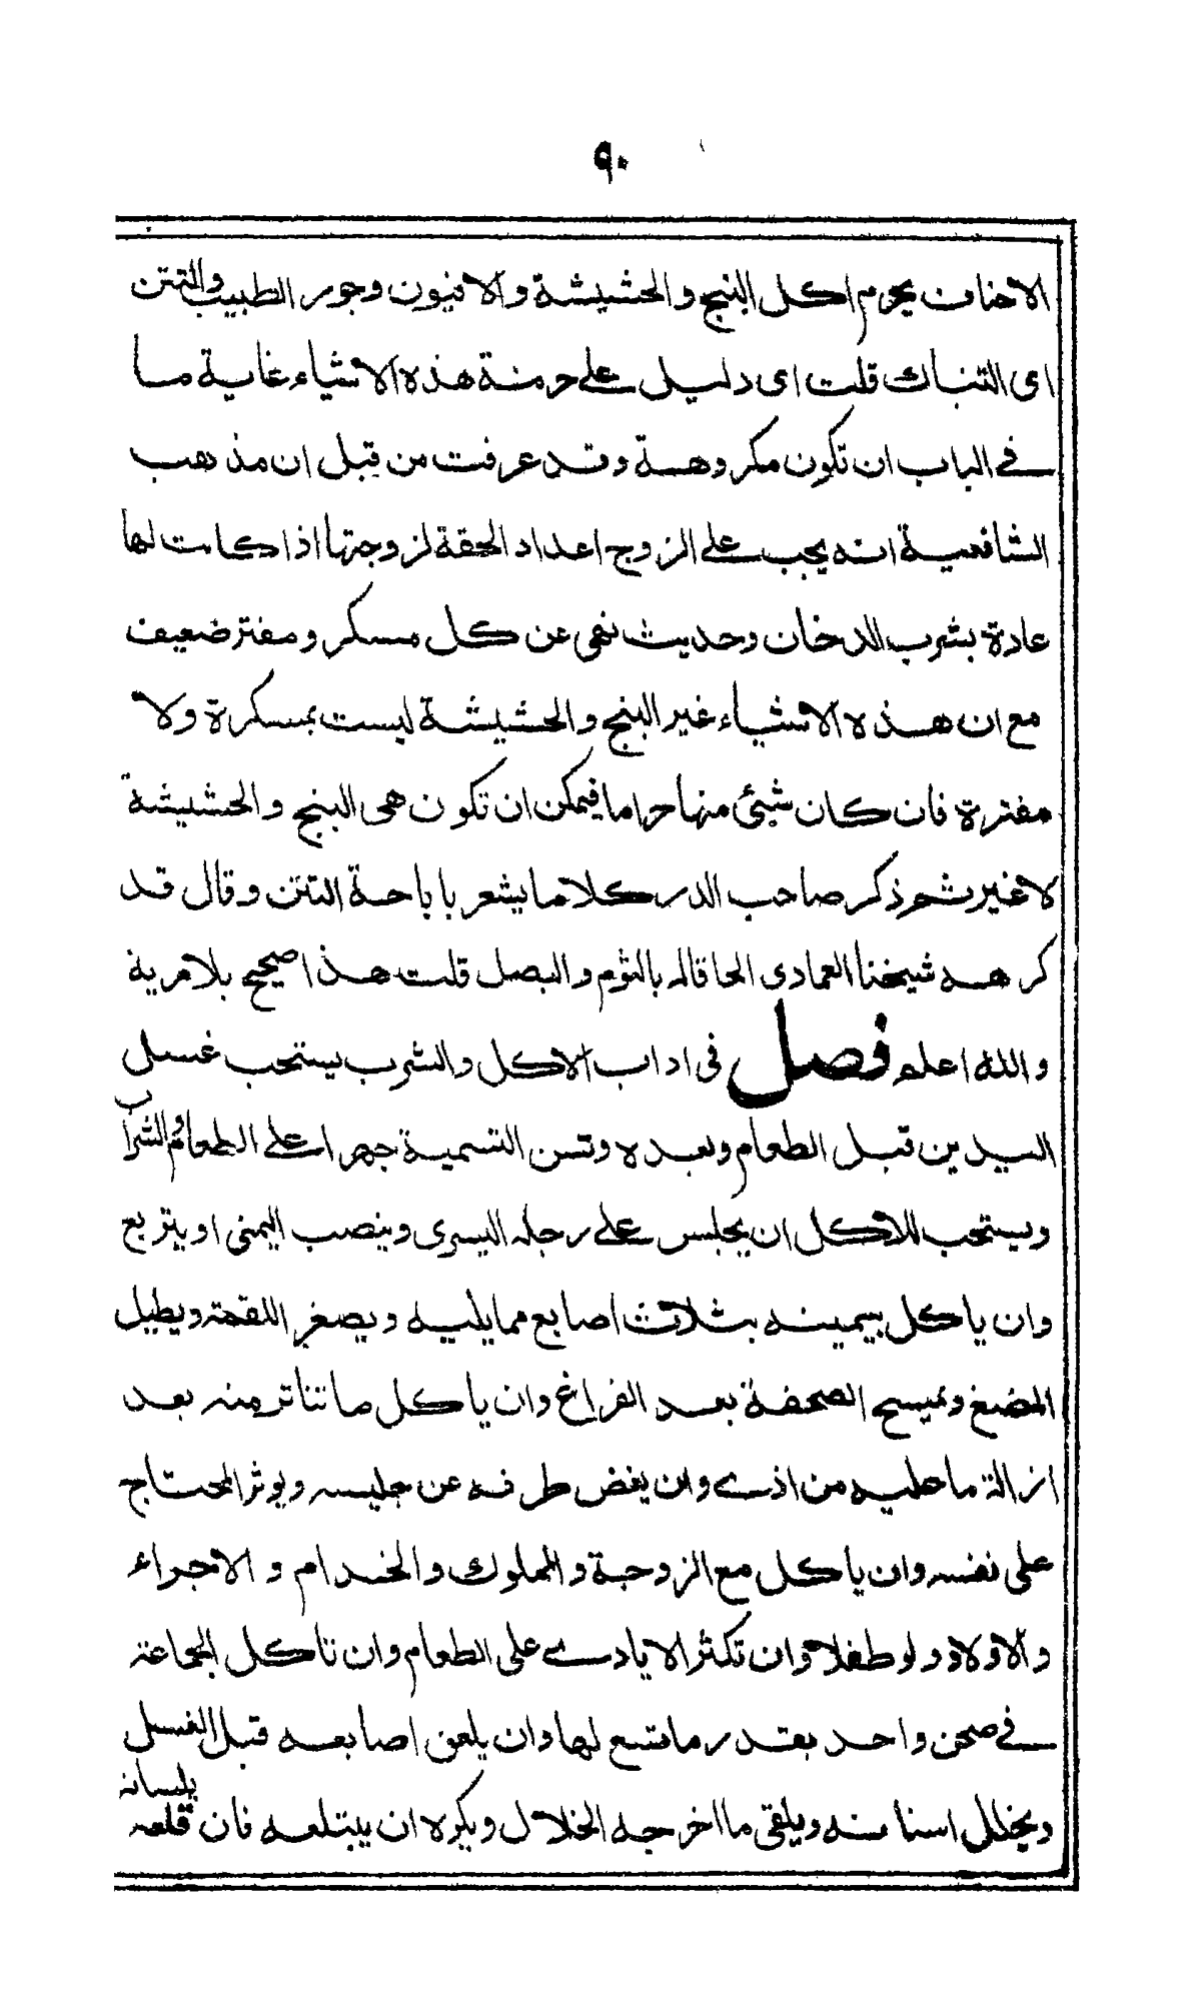 ٩٠
الاحناف يحرم اكل البنج والحشيشة والافيون وجوز الطيب والتتن
اى التنباك قلت اى دليل على حرمة هذه الاشياء غاية ما
فى الباب ان تكون مكروهة وقد عرفت من قبل ان مذهب
الشافعية انه يجب على الزوج اعداد الحقة لزوجتها اذا كانت لها
عادة بشرب الدخان وحديث نهى عن كل مسكر ومفتر ضعيف
مع ان هذه الاشياء غير البنج والحشيشة ليست بمسكرة ولا
مفترة فان كان شيئ منها حراما فيمكن ان تكون هى البنج والحشيشة
لا غير ثم ذكر صاحب الدر كلاما يشعر باباحة التتن وقال قد
كرهه شيخنا العمادى الحاقاله بالثوم والبصل قلت هذا صحيح بلا مرية
والله اعلم فصل فى اداب الاكل والشرب يستحب غسل
اليدين قبل الطعام وبعده وتسن التسمية جهرا على الطعام والشراب
ويستحب للاكل ان يجلس على رجله اليسرى وينصب اليمنى او يتربع
وان ياكل بيمينه بثلاث اصابع مما يليه ويصغر اللقمة ويطيل
المضغ ويمسح الصحفة بعد الفراغ وان ياكل ما تناثر منه بعد
ازالة ما عليه من اذى وان يغض طرفه عن جليسه ويوثر المحتاج
على نفسه وان ياكل مع الزوجة والمملوك والخدام والاجراء
والاولاد ولو طفلا وان تكثر الايادى على الطعام وان تاكل الجماعة
فى صحن واحد بقدر ما تسع لها وان يلعق اصابعه قبل الغسل
ويخلل اسنانه ويلقى ما اخرجه الخلال ويكره ان يبتلعه فان قلعه بلسانه